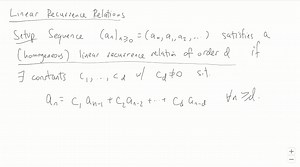 Linear Recurrence Relations
Setup. Sequence (aₙ)ₙ≥₀ = (a₀, a₁, a₂, ...) satisfies a
(homogeneous) linear recurrence relation of order d if
∃ constants c₁, ..., c_d w/ c_d ≠ 0 s.t.
aₙ = c₁ aₙ₋₁ + c₂ aₙ₋₂ + ... + c_d a_{n-d} ∀n ≥ d.